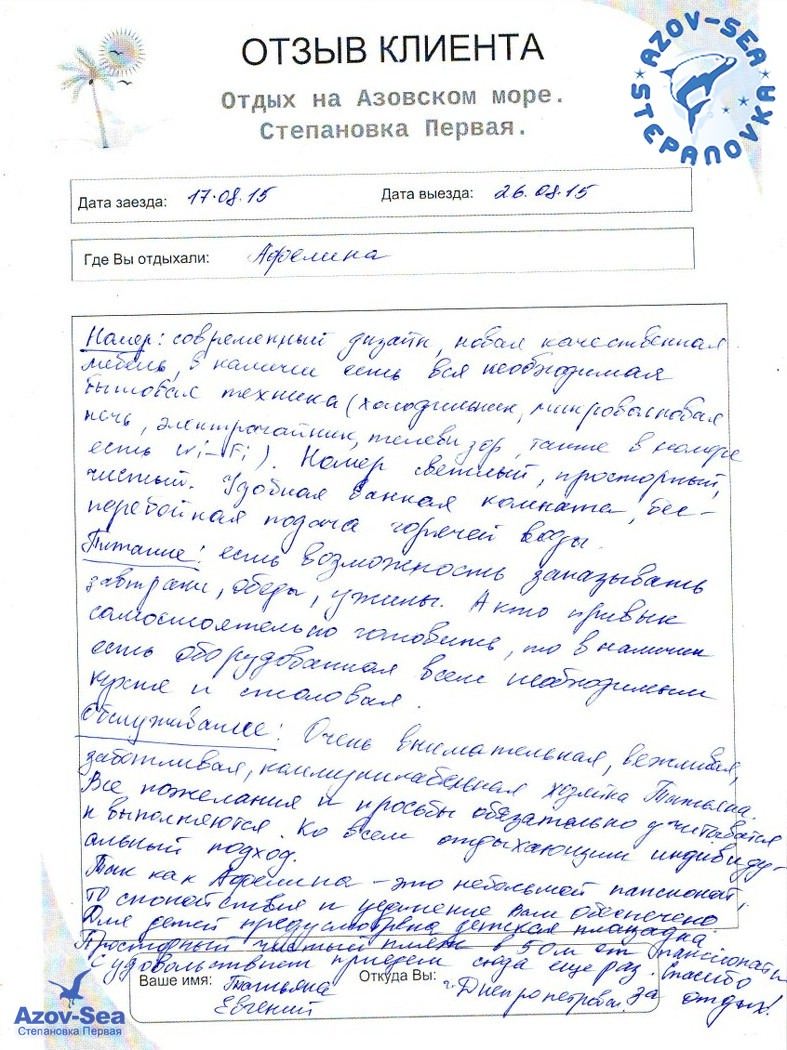 ОТЗЫВ КЛИЕНТА
AZOV-SEA
STEPANOVKA
Отдых на Азовском море.
Степановка Первая.
Дата заезда: 17.08.15 Дата выезда: 26.08.15
Где Вы отдыхали: Афелина
Номер: современный дизайн, новая качественная
мебель, в наличии есть вся необходимая
бытовая техника (холодильник, микроволновая
печь, электрочайник, телевизор, также в номере
есть Wi-Fi). Номер светлый, просторный,
чистый. Удобная ванная комната, бес-
перебойная подача горячей воды.
Питание: есть возможность заказывать
завтраки, обеды, ужины. А кто привык
самостоятельно готовить, то в наличии
есть оборудованная всем необходимым
кухня и столовая.
Обслуживание: Очень внимательная, вежливая,
заботливая, коммуникабельная хозяйка Татьяна.
Все пожелания и просьбы обязательно учитываются
и выполняются. Ко всем отдыхающим индивиду-
альный подход.
Так как Афелина - это небольшой пансионат,
то спокойствие и уединение Вам обеспечено.
Для детей предусмотрена детская площадка.
Просторный чистый пляж в 50 м от пансионата
С удовольствием приедем сюда еще раз. Спасибо
за отдых!
Ваше имя: Татьяна
Евгений
Откуда Вы: г. Днепропетровск
Azov-Sea
Степановка Первая